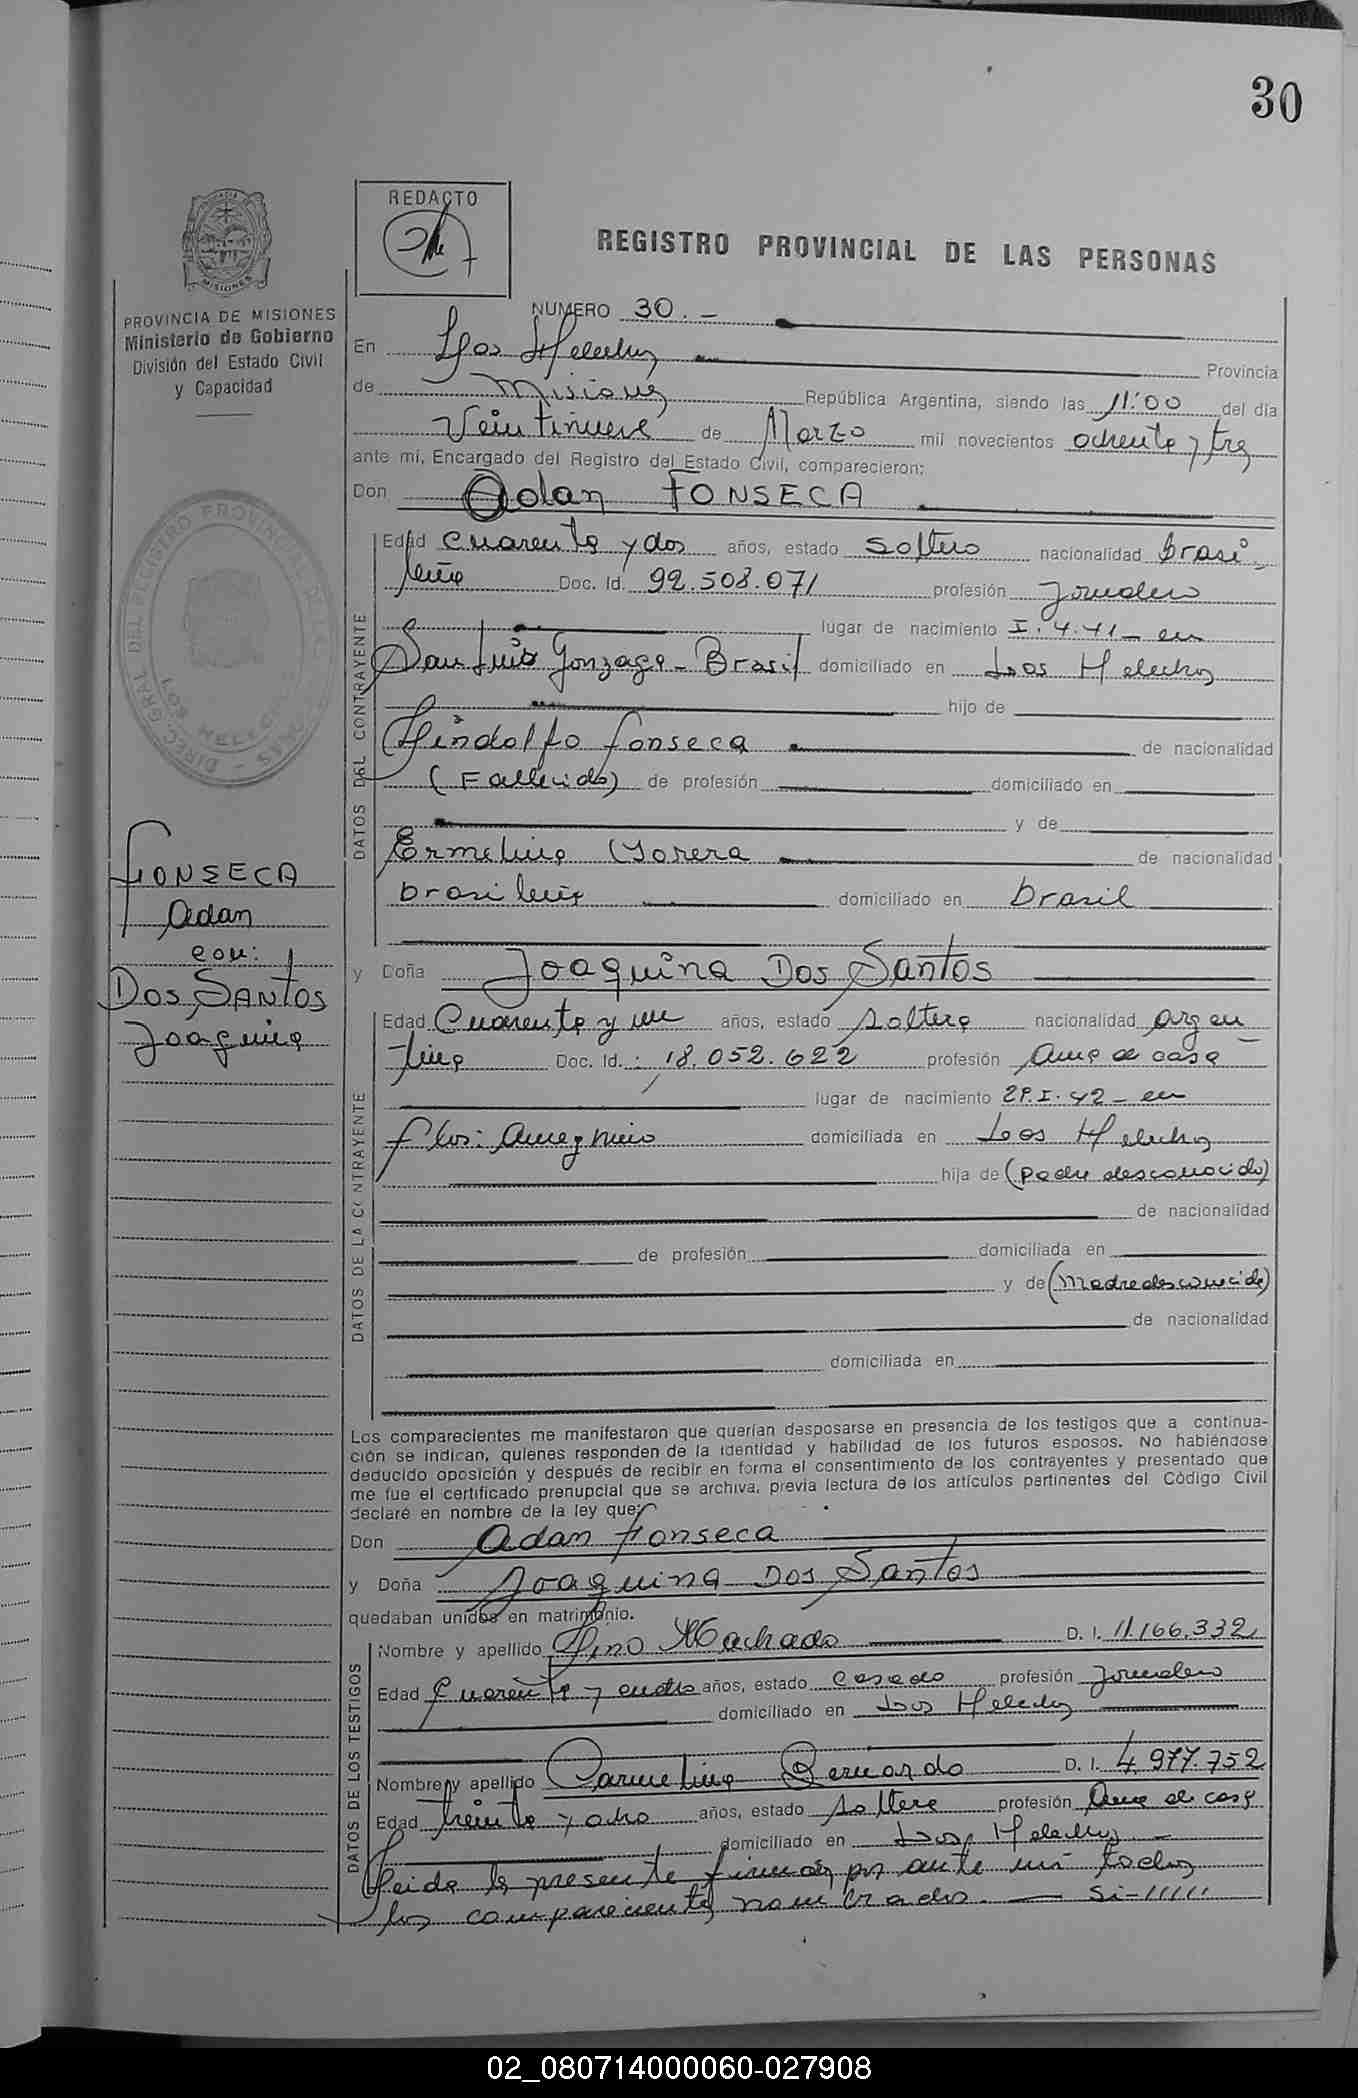 30
REDACTO
REGISTRO PROVINCIAL DE LAS PERSONAS
MISIONES
PROVINCIA DE MISIONES
Ministerio de Gobierno
División del Estado Civil
y Capacidad
NUMERO 30.-
En Los Helechos Provincia
de Misiones República Argentina, siendo las 11:00 del día
Veintinueve de Marzo mil novecientos ochenta y tres
ante mí, Encargado del Registro del Estado Civil, comparecieron:
Don Adan FONSECA
DATOS DEL CONTRAYENTE
Edad cuarenta y dos años, estado soltero nacionalidad brasi-
leña Doc. Id. 92.508.071 profesión Jornalero
lugar de nacimiento I.4.41- en
San Luis Gonzaga - Brasil domiciliado en Los Helechos
hijo de
Lindolfo Fonseca de nacionalidad
(Fallecido) de profesión domiciliado en
y de
Ermelina de nacionalidad
brasileña domiciliado en brasil
FONSECA
Adan
con:
DOS SANTOS
Joaquina
y Doña Joaquina Dos Santos
DATOS DE LA CONTRAYENTE
Edad Cuarenta y un años, estado soltera nacionalidad argen
tina Doc. Id. : 18.052.622 profesión Ama de casa
lugar de nacimiento I.42- en
Flor: Ameghino domiciliada en Los Helechos
hija de (padre desconocido)
de nacionalidad
de profesión domiciliada en
y de (Madre desconocida)
de nacionalidad
domiciliada en
Los comparecientes me manifestaron que querían desposarse en presencia de los testigos que a continua-
ción se indican, quienes responden de la identidad y habilidad de los futuros esposos. No habiéndose
deducido oposición y después de recibir en forma el consentimiento de los contrayentes y presentado que
me fue el certificado prenupcial que se archiva, previa lectura de los artículos pertinentes del Código Civil
declaré en nombre de la ley que:
Don Adan Fonseca
y Doña Joaquina Dos Santos
quedaban unidos en matrimonio.
DATOS DE LOS TESTIGOS
Nombre y apellido Lino Machado D. I. 11.166.332
Edad Cuarenta y cuatro años, estado casado profesión Jornalero
domiciliado en Los Helechos
Nombre y apellido Carmelina Bernardo D. I. 4.977.752
Edad treinta y ocho años, estado soltera profesión Ama de casa
domiciliado en Los Helechos -
Leida la presente firman por ante mi todos
los comparecientes nombrados. — Si-/////
02_080714000060-027908